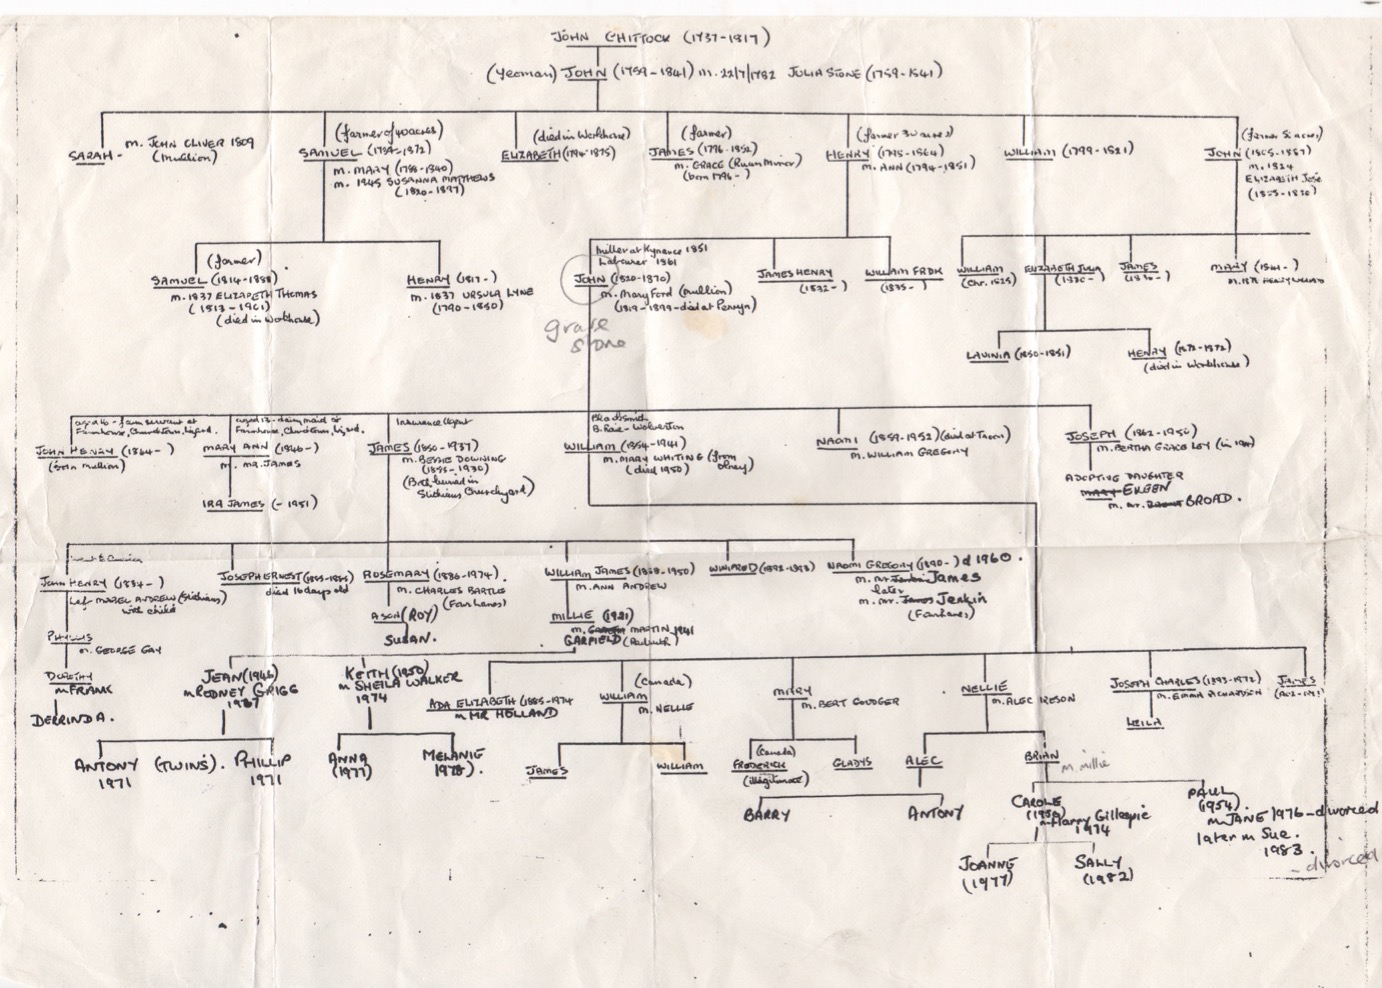 JOHN CHITTOCK (1737-1817)
(Yeoman) JOHN (1759-1841) m. 22/7/1782 JULIA STONE (1759-1841)
SARAH - m. JOHN OLIVER 1809
(Mullion)
(farmer of 40 acres)
SAMUEL
m. MARY (1788-1840)
m. 1845 SUSANNA MATTHEWS
(1820-1897)
(died in Workhouse)
ELIZABETH (1794-1875)
(farmer)
JAMES (1796-1852)
m. GRACE (Ruan Minor)
(born 1796 - )
(farmer acres)
HENRY (1798-1864)
m. ANN (1794-1851)
WILLIAM (1799-1821)
(farmer acres)
JOHN
m. 1824
ELIZABETH JOSE
(farmer)
SAMUEL (1814-1888)
m. 1837 ELIZABETH THOMAS
(1813-1901)
(died in Workhouse)
HENRY (1817- )
m. 1837 URSULA LYNE
(1790-1850)
Miller at Kynance 1851
Labourer 1861
JOHN (1820-1870)
m. Mary Ford (Mullion)
(1819-1899 - died at Penryn)
grave
stone
JAMES HENRY
(1832- )
WILLIAM FRDK
(1835- )
WILLIAM
(Chr. 1825)
ELIZABETH JULIA
(1830- )
JAMES
MARY
LAVINIA (1850-1851)
HENRY (1872-1872)
(died in Workhouse)
aged 16 - farm servant at
Farmhouse, Churchtown,
JOHN HENRY (1844- )
(born Mullion)
aged 13 - dairy maid at
Farmhouse, Churchtown,
MARY ANN (1846- )
m. Mr. JAMES
IRA JAMES ( - 1951)
Insurance Agent
JAMES (1850-1937)
m. BESSIE DOWNING
(1855-1930)
(Both buried in
Stithians Churchyard)
Blacksmith
B. Rail - Wolverton
WILLIAM (1854-1941)
m. MARY WHITING (from
Olney)
(died 1950)
NAOMI (1859-1952) (died at Truro)
m. WILLIAM GREGORY
JOSEPH (1862-1950)
m. BERTHA GRACE LEY
ADOPTIVE DAUGHTER
MARY EILEEN
m. Mr. BROAD.
JOHN HENRY (1884- )
Left MURIEL ANDREW (Stithians)
with child
PHYLLIS
m. GEORGE GAY
DOROTHY
m FRANK
DERRINDA.
JOSEPH ERNEST
died 16 days old
ROSEMARY (1886-1974).
m. CHARLES BARTLE
(Four Lanes)
A SON (ROY)
SUSAN.
WILLIAM JAMES (1888-1950)
m. ANN ANDREW
MILLIE (1921)
m. MARTIN 1941
GARFIELD (Redruth)
WINIFRED (1892-1893)
NAOMI GREGORY (1890- ) d 1960.
m. Mr James
later
m. Mr. James Jenkin
(Four Lanes)
JEAN (1946)
m RODNEY GRIGG
1967
KEITH (1950)
m SHEILA WALKER
1974
ANTONY (TWINS). PHILLIP
1971 1971
ANNA
(1977)
MELANIE
ADA ELIZABETH (1885-1974
m MR HOLLAND
(Canada)
WILLIAM
m. NELLIE
JAMES
WILLIAM
MARY
m. BERT GUDGER
(Canada)
FREDERICK
(illegitimate)
GLADYS
NELLIE
m. ALEC IRESON
ALEC
BRIAN
m Millie
JOSEPH CHARLES (1893-1972)
m. EMMA RICHARDSON
LEILA
JAMES
BARRY
ANTONY
CAROLE
m Harry Gillespie
1974
PAUL
(1954).
m. JANE 1976 - divorced
later m Sue.
1983.
- divorced
JOANNE
(1977)
SALLY
(1982)